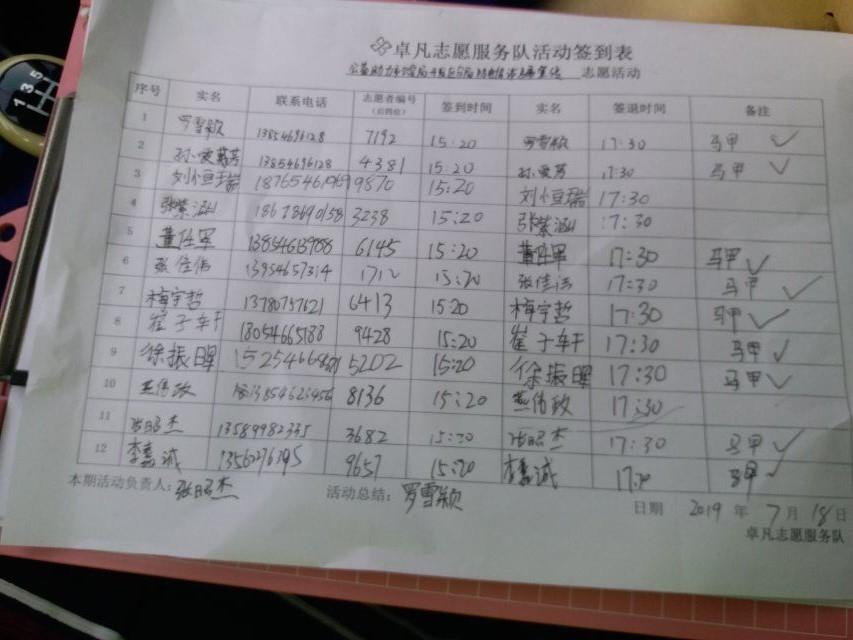 卓凡志愿服务队活动签到表
志愿活动
序号 实名 联系电话 志愿者编号（后四位） 签到时间 实名 签退时间 备注
1 罗雪颖 13854696128 7192 15:20 罗雪颖 17:30 马甲 ✓
2 孙爱芳 13854696128 4381 15:20 孙爱芳 17:30 马甲 ✓
3 刘恒瑞 9870 15:20 刘恒瑞 17:30
4 张紫涵 3238 15:20 张紫涵 17:30
5 董仕军 13854613988 6145 15:20 董仕军 17:30 马甲 ✓
6 张佳伟 13954657314 1712 15:20 17:30 马甲 ✓
7 梅宇哲 13780757621 6413 15:20 梅宇哲 17:30 马甲 ✓
8 崔子轩 18054665188 9428 15:20 崔子轩 17:30 马甲 ✓
9 徐振晖 5202 15:20 徐振晖 17:30 马甲 ✓
10 燕伟政 8136 15:20 燕伟政 17:30
11 张昭杰 13589982335 3682 15:20 张昭杰 17:30 马甲 ✓
12 李嘉诚 9657 15:20 李嘉诚 马甲 ✓
本期活动负责人：张昭杰 活动总结：罗雪颖
日期 2019 年 7 月 18 日
卓凡志愿服务队
5 3 1